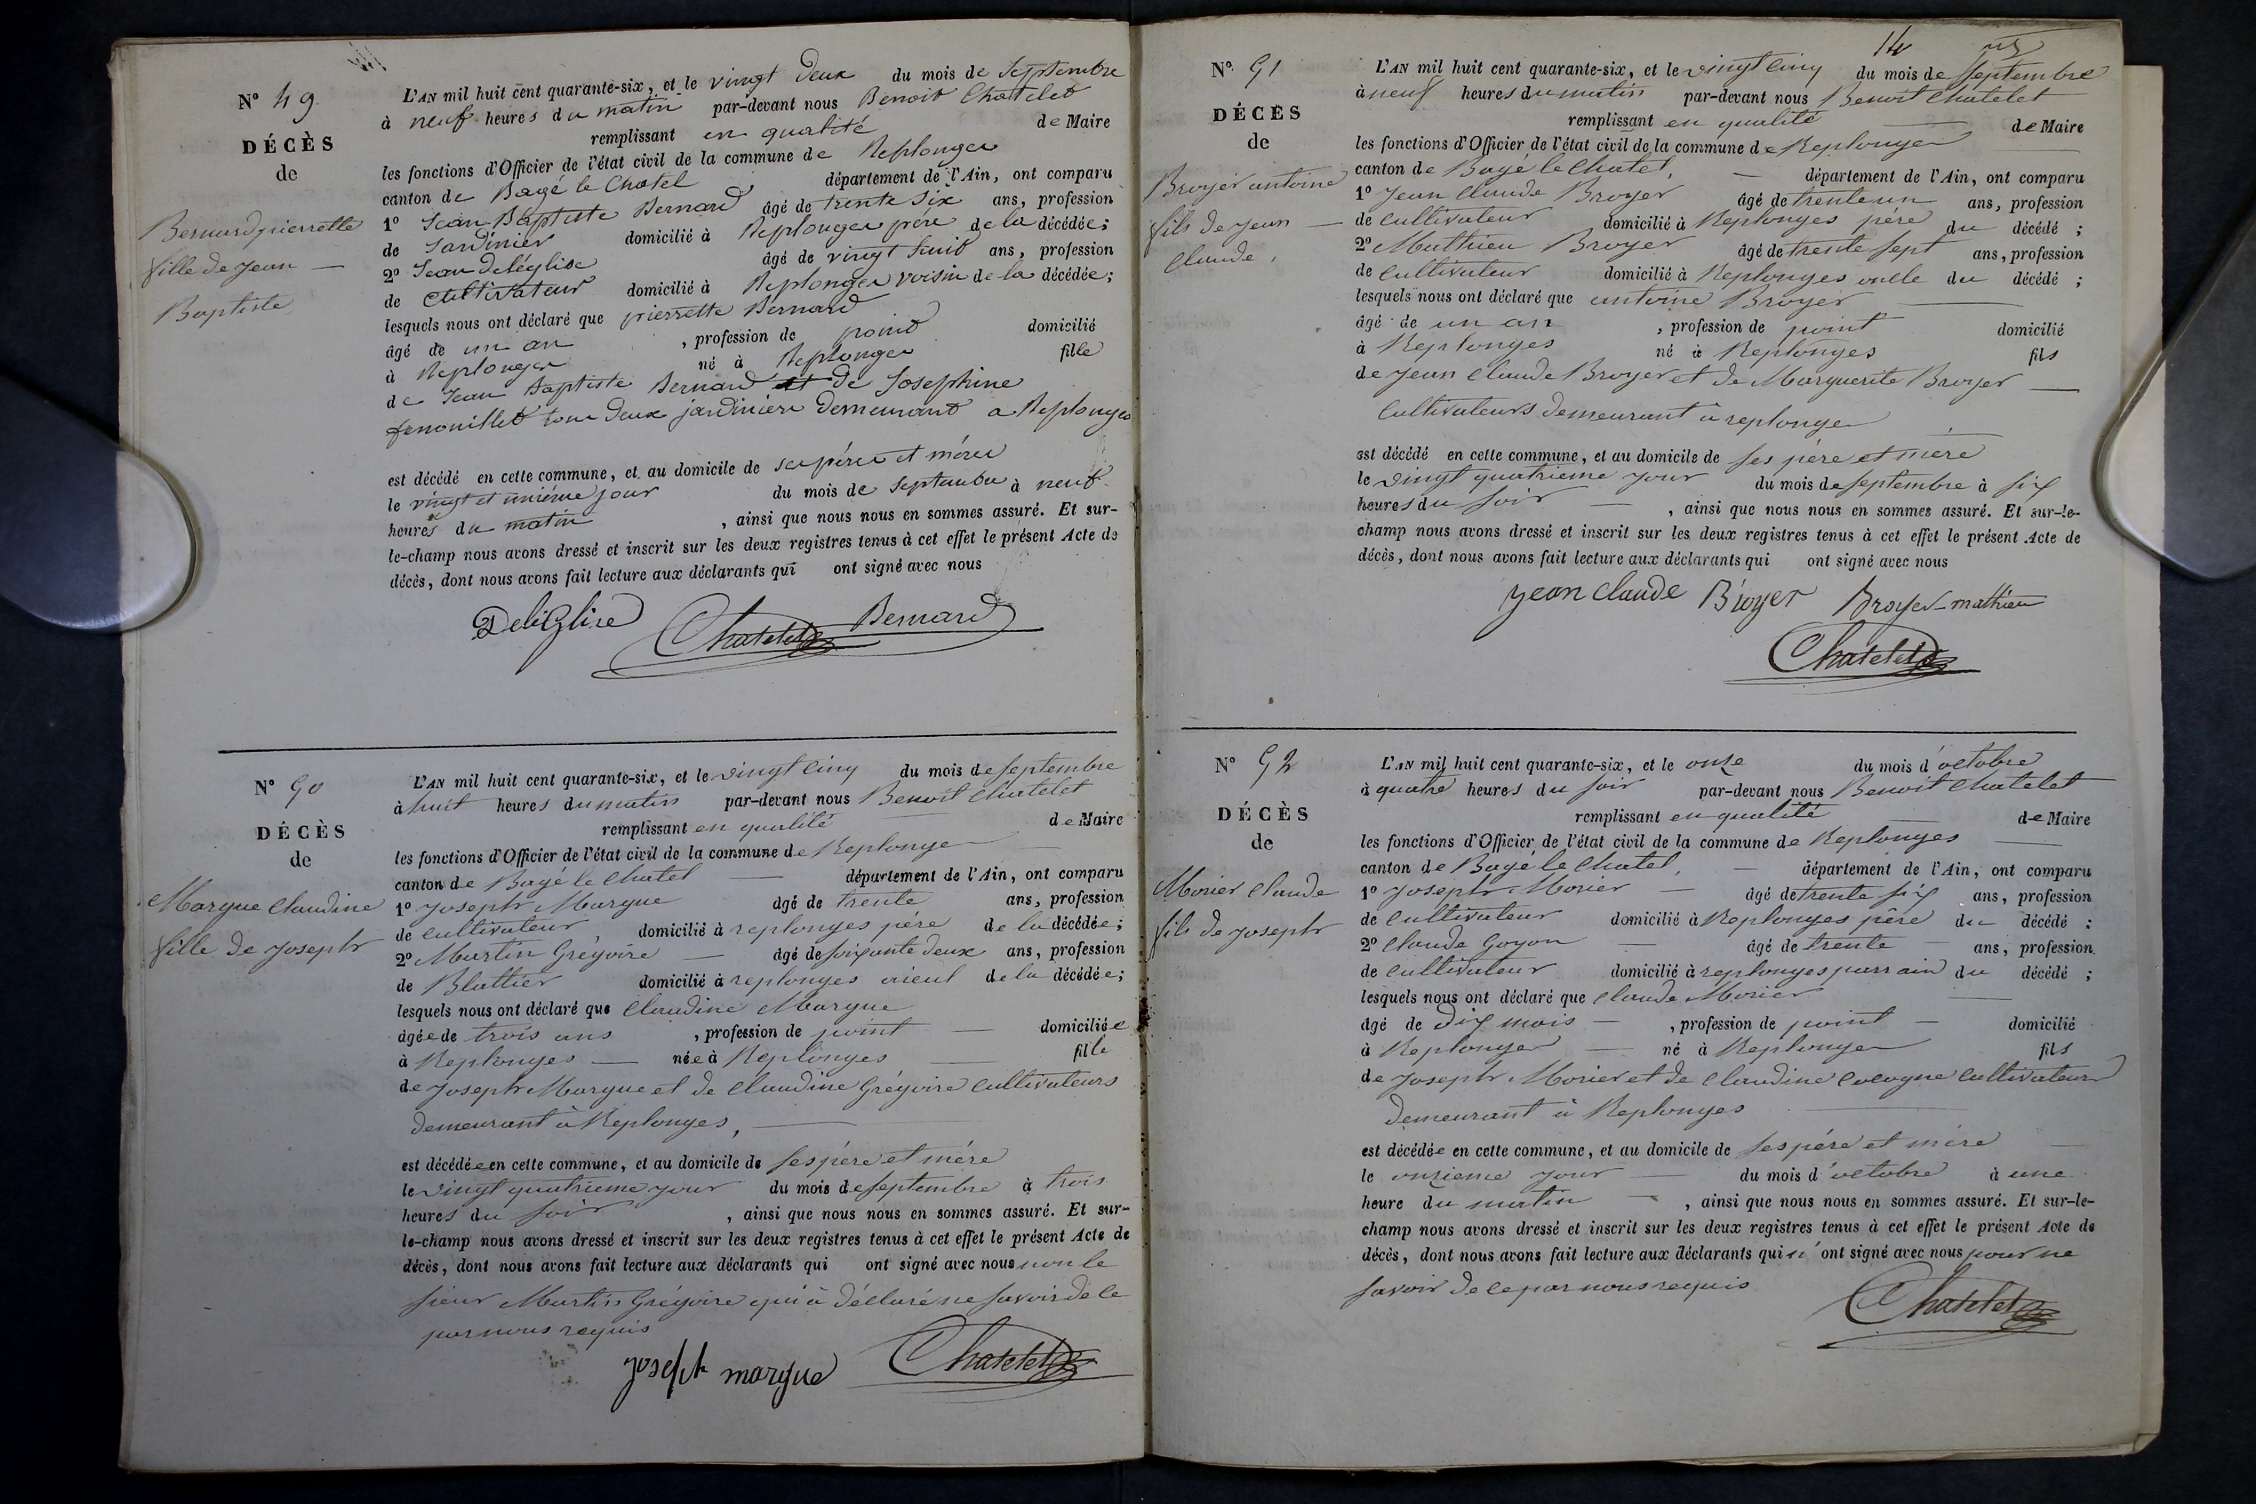 N° 49
DÉCÈS
de
Bernard pierrette
fille de Jean
Baptiste
L'AN mil huit cent quarante-six, et le vingt deux du mois de Septembre
à neuf heures du matin par-devant nous Benoit Chatelet
remplissant en qualité de Maire
les fonctions d'Officier de l'état civil de la commune de Replonges
canton de Bagé le Chatel département de l'Ain, ont comparu
1° Jean Baptiste Bernard âgé de trente six ans, profession
de Jardinier domicilié à Replonges père de la décédée;
2° Jean Deléglise âgé de vingt huit ans, profession
de Cultivateur domicilié à Replonges voisin de la décédée;
lesquels nous ont déclaré que pierrette Bernard
âgé de un an, profession de point domicilié
à Replonges né à Replonges fille
de Jean Baptiste Bernard et de Josephine
fenouillet tous deux jardiniers demeurant a Replonges
est décédé en cette commune, et au domicile de ses pére et mére
le vingt et uniéme jour du mois de Septembre à neuf
heures du matin, ainsi que nous nous en sommes assuré. Et sur-
le-champ nous avons dressé et inscrit sur les deux registres tenus à cet effet le présent Acte de
décès, dont nous avons fait lecture aux déclarants qui ont signé avec nous
Deléglise Chatelet Bernard
N° 50
DÉCÈS
de
Morgue Claudine
fille de Joseph
L'AN mil huit cent quarante-six, et le vingt cinq du mois de septembre
à huit heures du matin par-devant nous Benoit Chatelet
remplissant en qualité de Maire
les fonctions d'Officier de l'état civil de la commune de Replonges
canton de Bagé le Chatel département de l'Ain, ont comparu
1° Joseph Morgue âgé de trente ans, profession
de cultivateur domicilié à replonges pére de la décédée;
2° Martin Grégoire âgé de soixante deux ans, profession
de Blattier domicilié à replonges aieul de la décédée;
lesquels nous ont déclaré que Claudine Morgue
âgée de trois ans, profession de point domiciliée
à Replonges née à Replonges fille
de Joseph Morgue et de Claudine Grégoire Cultivateurs
demeurant à Replonges,
est décédée en cette commune, et au domicile de ses pére et mére
le vingt quatrieme jour du mois de septembre à trois
heures du soir, ainsi que nous nous en sommes assuré. Et sur-
le-champ nous avons dressé et inscrit sur les deux registres tenus à cet effet le présent Acte de
décès, dont nous avons fait lecture aux déclarants qui ont signé avec nous non le
sieur Martin Grégoire qui à déclaré ne savoir de ce
par nous requis
joseph morgue Chatelet
14
N° 51
DÉCÈS
de
Broyer antoine
fils de Jean
Claude,
L'AN mil huit cent quarante-six, et le vingt cinq du mois de septembre
à neuf heures du matin par-devant nous Benoit Chatelet
remplissant en qualité de Maire
les fonctions d'Officier de l'état civil de la commune de Replonges
canton de Bagé le Chatel, département de l'Ain, ont comparu
1° Jean Claude Broyer âgé de trente un ans, profession
de Cultivateur domicilié à Replonges pére du décédé;
2° Mathieu Broyer âgé de trente sept ans, profession
de Cultivateur domicilié à Replonges oncle du décédé;
lesquels nous ont déclaré que antoine Broyer
âgé de un an, profession de point domicilié
à Replonges né à Replonges fils
de Jean Claude Broyer et de Marguerite Broyer
Cultivateurs demeurant à replonges
est décédé en cette commune, et au domicile de ses pére et mére
le vingt quatrieme jour du mois de septembre à six
heures du soir, ainsi que nous nous en sommes assuré. Et sur-le-
champ nous avons dressé et inscrit sur les deux registres tenus à cet effet le présent Acte de
décès, dont nous avons fait lecture aux déclarants qui ont signé avec nous
jean claude Broyer Broyer mathieu
Chatelet
N° 52
DÉCÈS
de
Morier Claude
fils de Joseph
L'AN mil huit cent quarante-six, et le onze du mois d'octobre
à quatre heures du soir par-devant nous Benoit Chatelet
remplissant en qualité de Maire
les fonctions d'Officier de l'état civil de la commune de Replonges
canton de Bagé le Chatel, département de l'Ain, ont comparu
1° Joseph Morier âgé de trente six ans, profession
de Cultivateur domicilié à Replonges pére du décédé;
2° Claude Goyon âgé de trente ans, profession
de Cultivateur domicilié à replonges parrain du décédé;
lesquels nous ont déclaré que Claude Morier
âgé de dix mois, profession de point domicilié
à Replonges né à Replonges fils
de Joseph Morier et de Claudine Cocogne Cultivateurs
demeurant à Replonges
est décédée en cette commune, et au domicile de ses pére et mére
le onzieme jour du mois d'octobre à une
heure du matin, ainsi que nous nous en sommes assuré. Et sur-le-
champ nous avons dressé et inscrit sur les deux registres tenus à cet effet le présent Acte de
décès, dont nous avons fait lecture aux déclarants qui n'ont signé avec nous pour ne
savoir de ce par nous requis
Chatelet